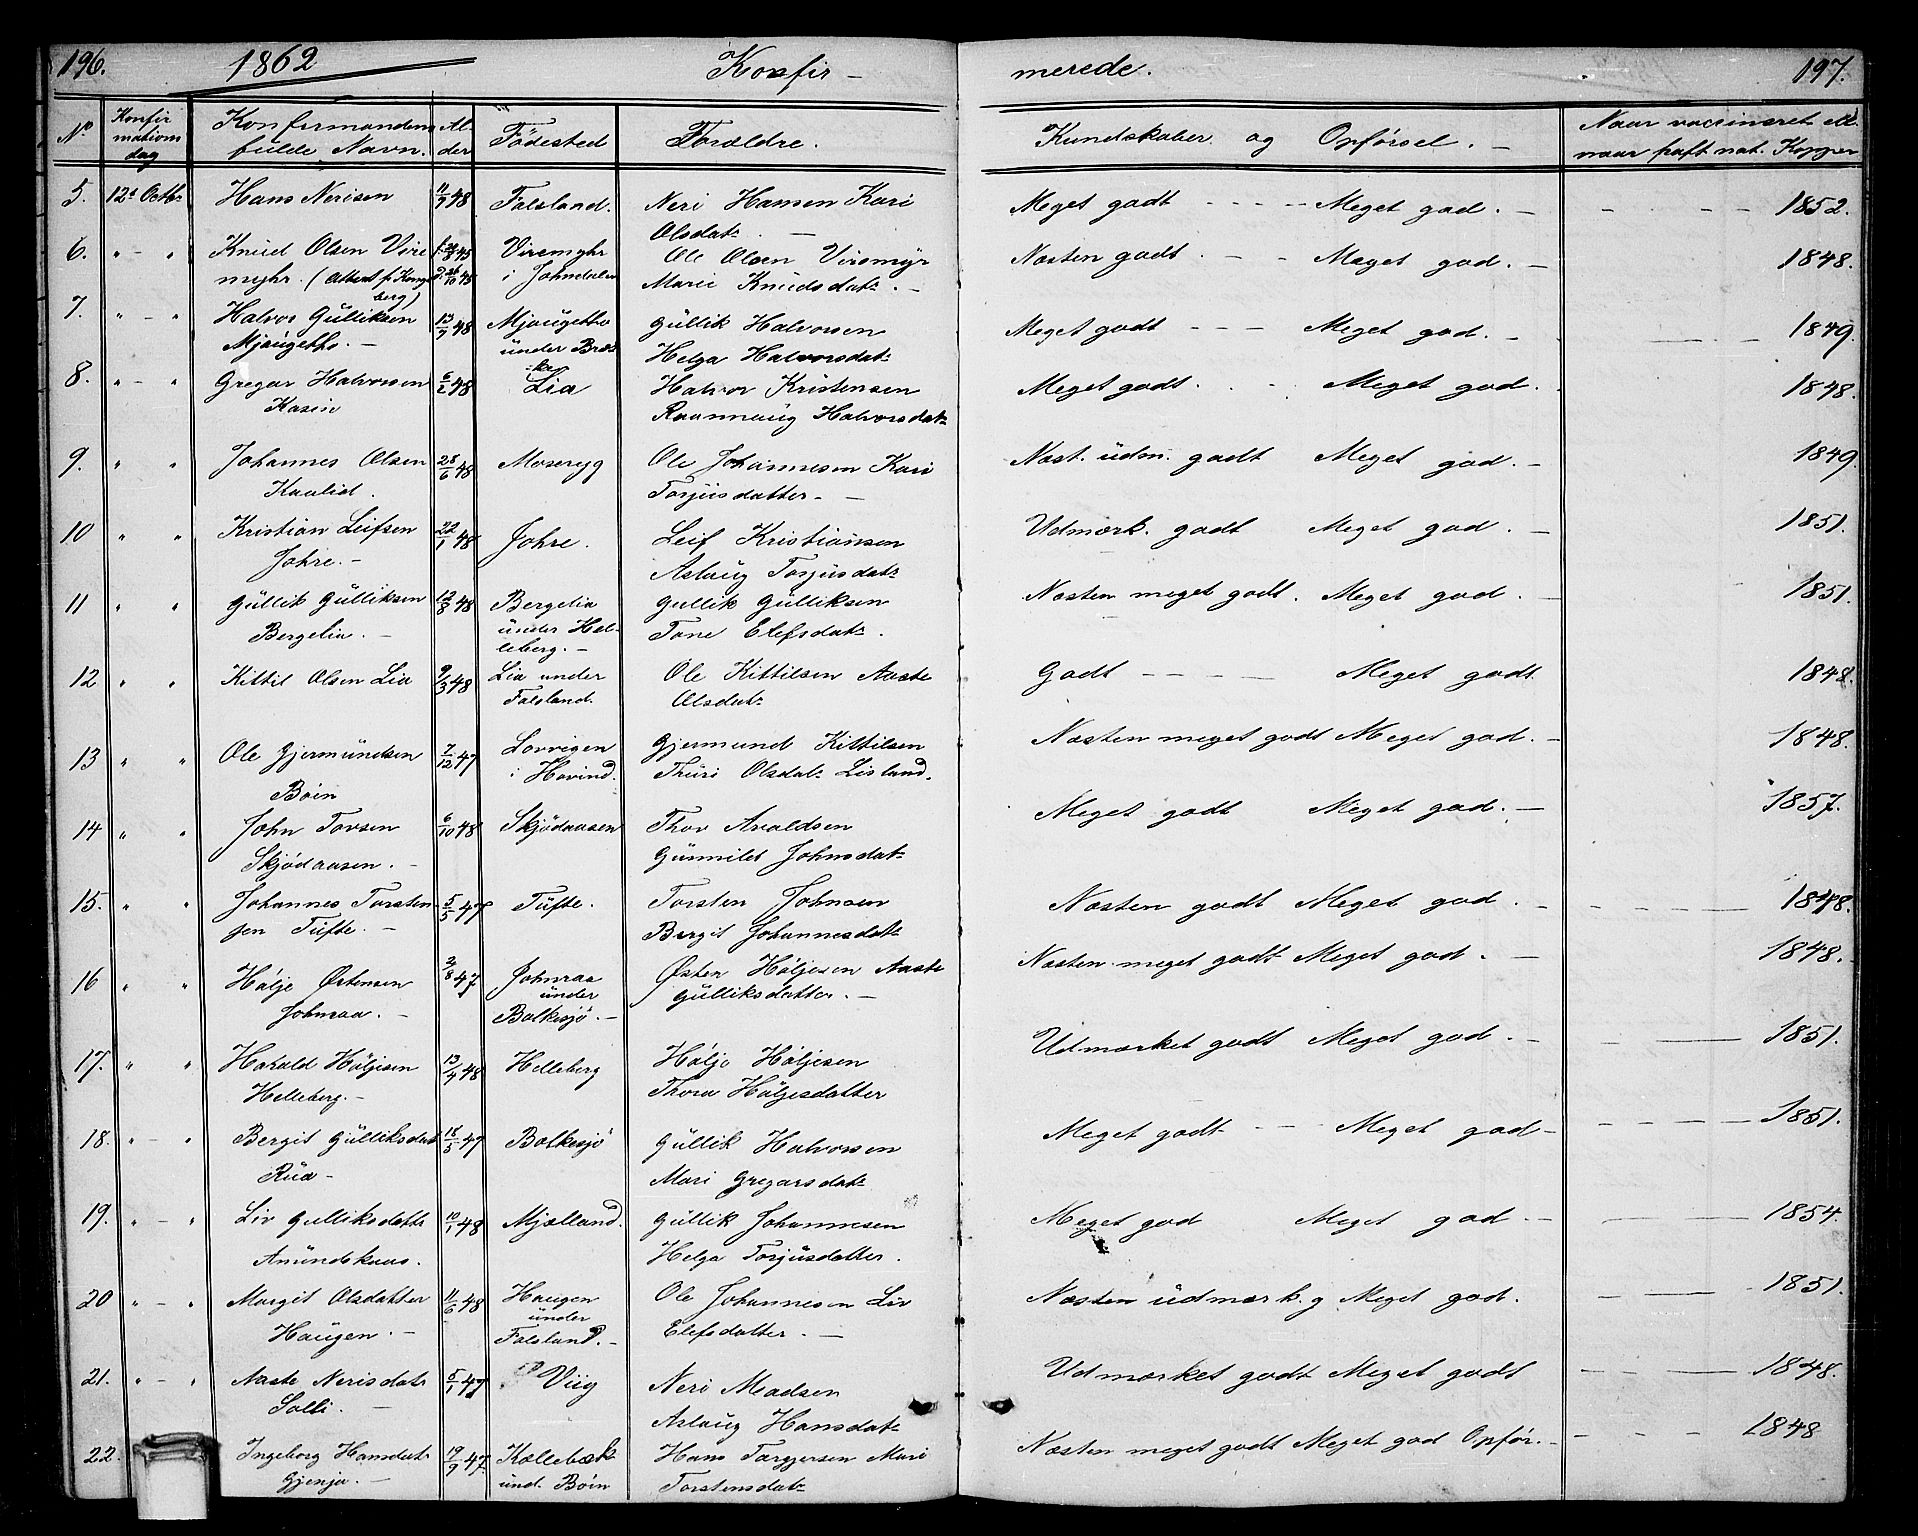 196. 1862 Konfir-
merede. 197.
No Konfirmations dag Konfirmandens fulde Navn. Alder Födested Forældre. Kundskaber og Opførsel. Naar vaccineret ell. naar haft nat. Kopper
5. 12t Octbr Hans Nerisen 11/7 48 Falsland. Neri Hansen Kari Meget godt - - - - Meget god. 1852.
Olsdatr
6. " - " Knud Olsen Vire Viremyhr Ole Olsen Viremyr Næsten godt. - - Meget god. 1848.
myhr. (Attest fr Kongsberg) i Johndalen Marie Knudsdatr.
7. " - " Halvor Gulliksen 13/7 48 Mjaugetho Gullik Halvorsen Meget godt - - - Meget god. 1849.
Mjaugetho. under Bræka Helga Halvorsdatr
8. " - " Gregar Halvorsen 6/2 48 Lia Halvor Kristensen Meget godt. - Meget god. 1848.
Kasin Raannaug Halvorsdatr
9. " " Johannes Olsen 28/6 48 Moseryg Ole Johannesen Kari Næst. udm. godt Meget god. 1849.
Kaalid. Torjusdatter
10 " " Kristian Leifsen 22/1 48 Johre. Leif Kristiansen Udmærk. godt Meget god. 1851.
Johre. Aslaug Torjusdatr
11 " " Gullik Gulliksen 12/8 48 Bergelia Gullik Gulliksen Næsten meget godt. Meget god. 1851.
Bergelia. under Helleberg. Tone Elefsdatr.
12 " " Kittil Olsen Lia 9/3 48 Lia under Ole Kittilsen Aaste Godt - - - - Meget godt 1848.
Falsland. Olsdatr
13 " " Ole Gjermundsen 7/12 47 Lovrigen Gjermund Kittilsen Næsten meget godt Meget god. 1848.
Böin i Hovind. Thuri Olsdatr Lisland.
14 " " John Torsen 6/10 48 Skjödaasen Thor Avaldsen Meget godt Meget god. 1857.
Skjödaasen. Gunnild Johnsdatr
15. " " Johannes Torsten 5/5 47 Tufte. Torsten Johnsen Næsten godt Meget god. 1848.
sen Tufte. Bergit Johannesdatr
16 " " Hölje Østensen 2/8 47 Johnraa Østen Höljesen Aaste Næsten meget godt Meget god. 1848.
Johnraa. under Bolkesjö. Gulliksdatter.
17. " " Harald Höljesen 13/4 48 Helleberg Hölje Höljesen Udmærket godt Meget god. 1851.
Helleberg. Thora Höljesdatter
18. " - " Bergit Gulliksdat 18/5 47 Bolkesjö Gullik Halvorsen Meget godt - - - Meget god 1851.
Rua Mari Gregarsdatr
19. " - " Liv Gulliksdattr 10/1 48 Mjælland. Gullik Johannesen Meget god Meget god. 1854.
Amundskaas. Helga Torjusdatter.
20 " - " Margit Olsdatter 11/6 48 Haugen Ole Johannesen Liv Næsten udmærk. g Meget god. 1851.
Haugen. under Falsland. Elefsdatter.
21. " - " Aaste Nerisdatr 5/1 47 Viig Neri Madsen Udmærket godt Meget godt 1848.
Solli. Aslaug Hansdatr
22. Ingeborg Hansdatr 19/9 47. Kollebæk Hans Torgersen Mari Næsten meget godt Meget god Opför. 1848
Gjenja. und. Böin Torstensdatr